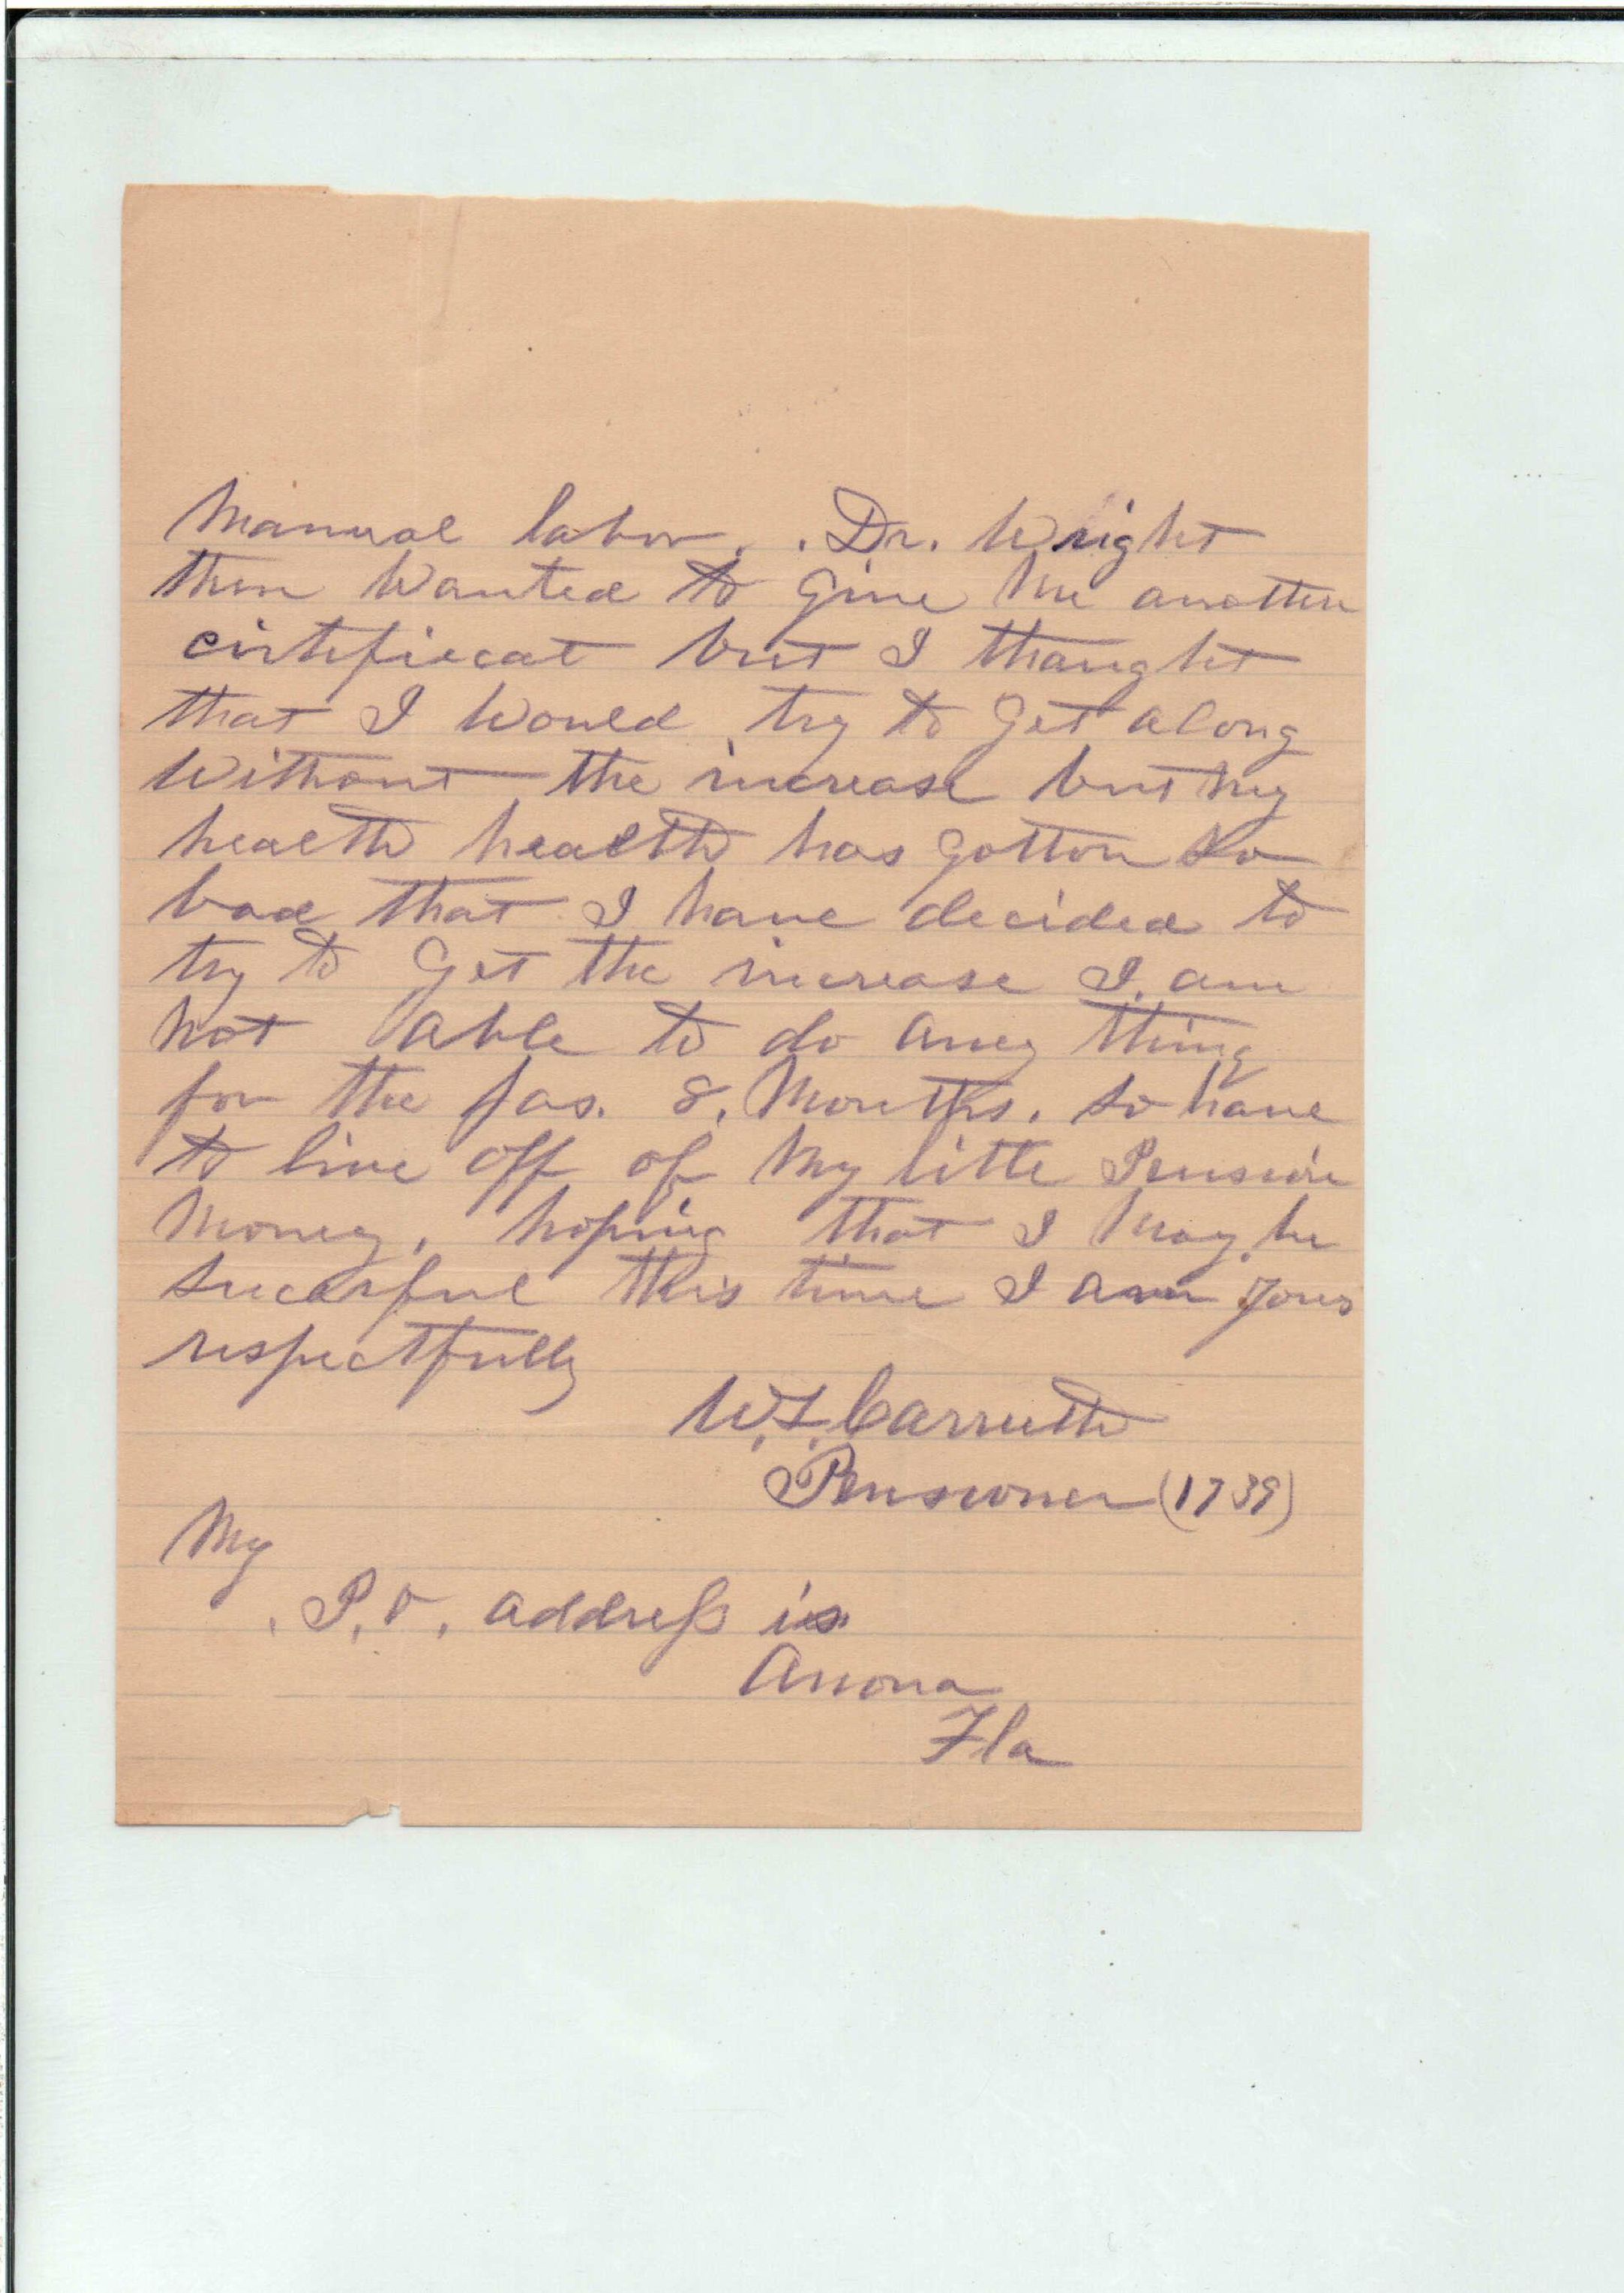 Manual labor. . Dr. Wright
then Wanted to Give Me another
cirtifiecat but I thaught
that I Would, try to Get along
Without the increase but My
health health has gotton so
bad that I have decided to
try to Get the increase I. am
Not able to do any thing
for the pas. 8, Months. so have
to live off of My little Pension
Money, hoping that I May. be
sucesful this time I am yours
respectfully
W. L. Carruth
Pensioner (1739)
My
. P. O. address is
Anona
Fla